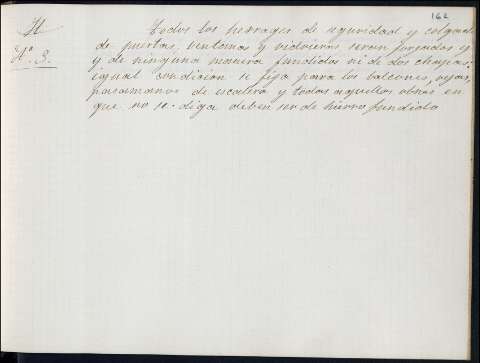 162
H
Nº 3.
Todos los herrages de seguridad y colgado
de puertas, ventanas y vidrieras, seran forjados
y de ninguna manera fundidos ni de dos chapas;
igual condicion se fija para los balcones, rejas,
pasamanos de escalera y todas aquellas obras en
que no se diga deben ser de hierro fundido